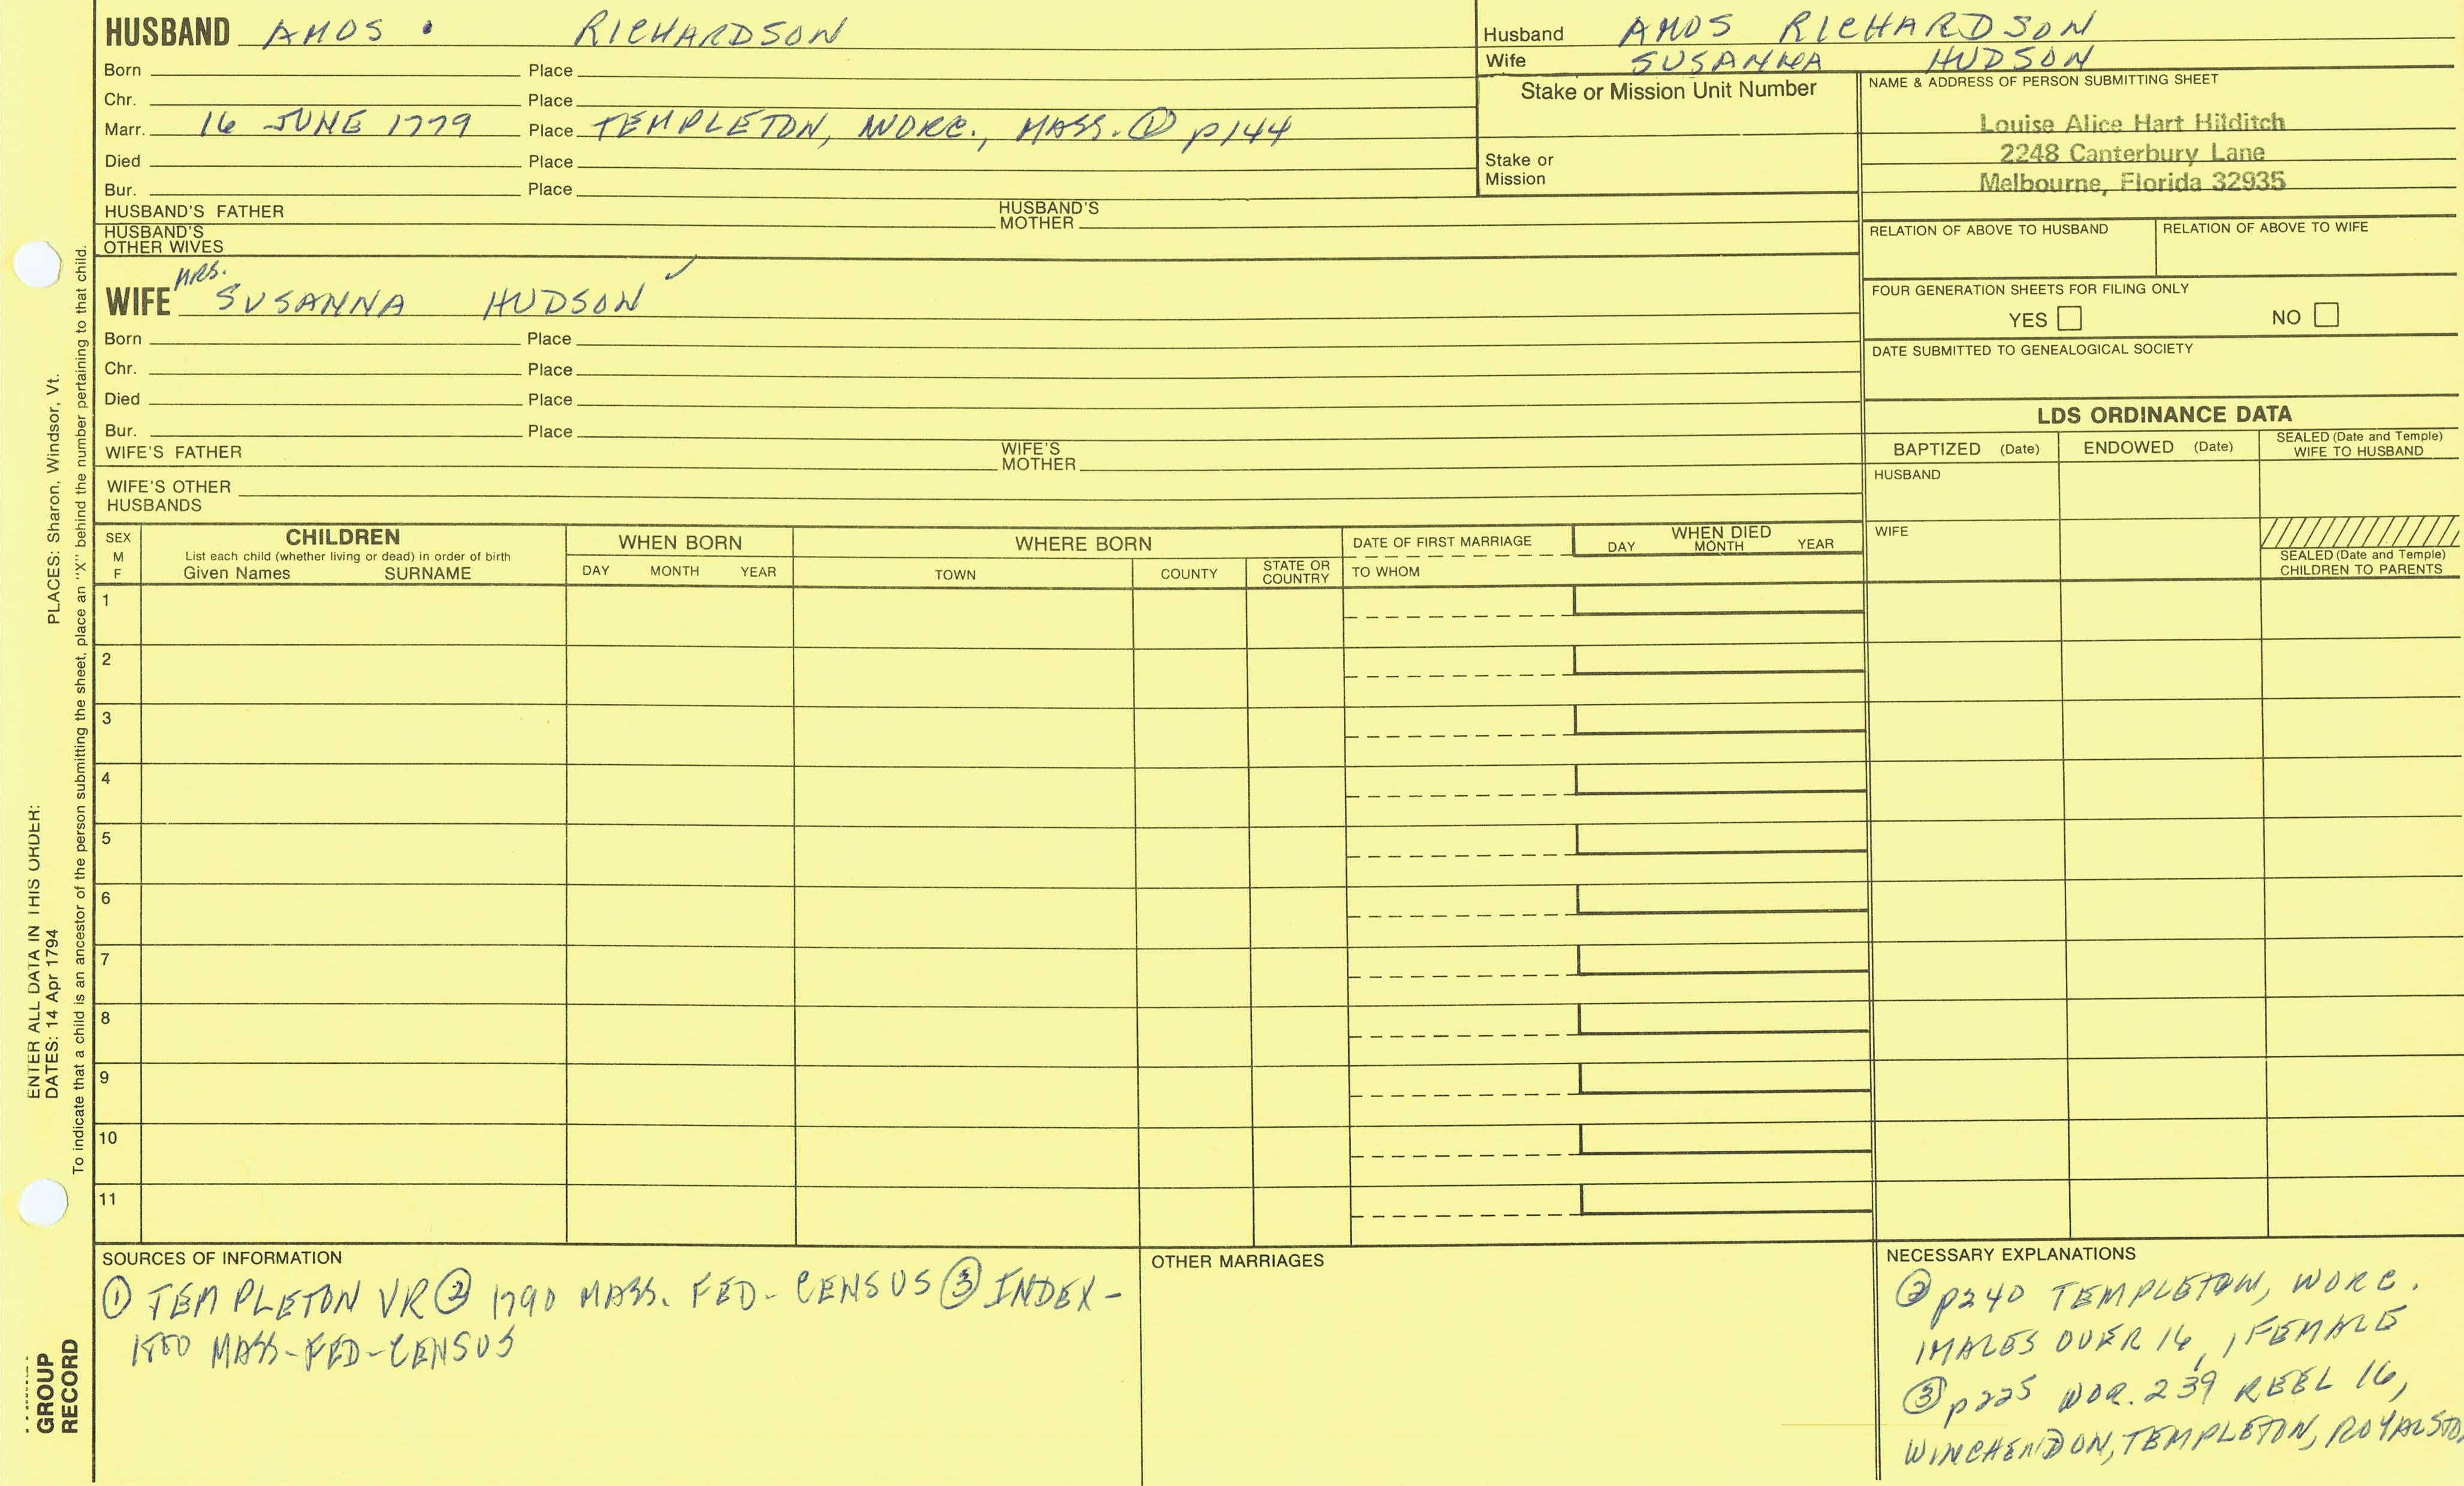 HUSBAND AMOS . RICHARDSON
Born Place
Chr. Place
Marr. 16 JUNE 1779 Place TEMPLETON, WORC., MASS. ① p144
Died Place
Bur. Place
HUSBAND'S FATHER HUSBAND'S MOTHER
HUSBAND'S OTHER WIVES
MRS.
WIFE SUSANNA HUDSON ✓
Born Place
Chr. Place
Died Place
Bur. Place
WIFE'S FATHER WIFE'S MOTHER
WIFE'S OTHER HUSBANDS
Husband AMOS RICHARDSON
Wife SUSANNA HUDSON
Stake or Mission Unit Number
Stake or
Mission
NAME & ADDRESS OF PERSON SUBMITTING SHEET
Louise Alice Hart Hilditch
2248 Canterbury Lane
Melbourne, Florida 32935
RELATION OF ABOVE TO HUSBAND RELATION OF ABOVE TO WIFE
FOUR GENERATION SHEETS FOR FILING ONLY
YES NO
DATE SUBMITTED TO GENEALOGICAL SOCIETY
LDS ORDINANCE DATA
BAPTIZED (Date) ENDOWED (Date) SEALED (Date and Temple) WIFE TO HUSBAND
HUSBAND
WIFE
SEALED (Date and Temple)
CHILDREN TO PARENTS
SEX
M
F
CHILDREN
List each child (whether living or dead) in order of birth
Given Names SURNAME
WHEN BORN
DAY MONTH YEAR
WHERE BORN
TOWN COUNTY STATE OR COUNTRY
DATE OF FIRST MARRIAGE
TO WHOM
WHEN DIED
DAY MONTH YEAR
1
2
3
4
5
6
7
8
9
10
11
SOURCES OF INFORMATION
① TEMPLETON VR ② 1790 MASS. FED- CENSUS ③ INDEX-
1800 MASS-FED-CENSUS
OTHER MARRIAGES
NECESSARY EXPLANATIONS
② p240 TEMPLETON, WORC.
1MALES OVER 16, 1 FEMALE
③ p225 WOR. 239 REEL 16,
WINCHENDON, TEMPLETON, ROYALSTO
ENTER ALL DATA IN THIS ORDER:
DATES: 14 Apr 1794 PLACES: Sharon, Windsor, Vt.
To indicate that a child is an ancestor of the person submitting the sheet, place an "X" behind the number pertaining to that child.
GROUP
RECORD